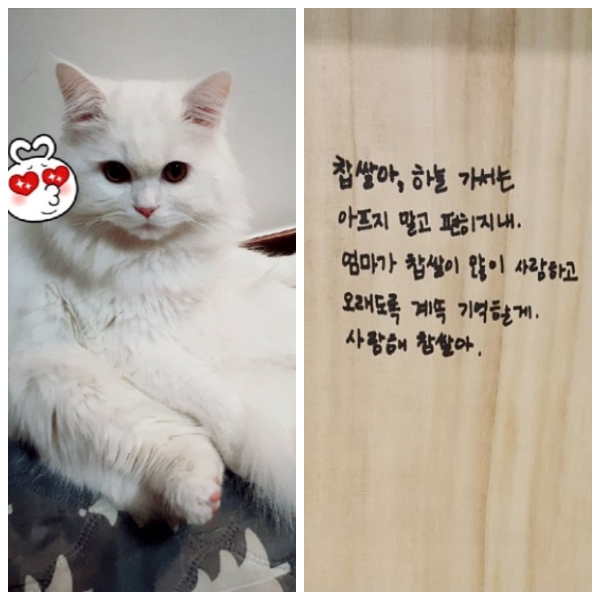 찹쌀아, 하늘 가서는
아프지 말고 편히지내.
엄마가 찹쌀이 많이 사랑하고
오래도록 계속 기억할게.
사랑해 찹쌀아.